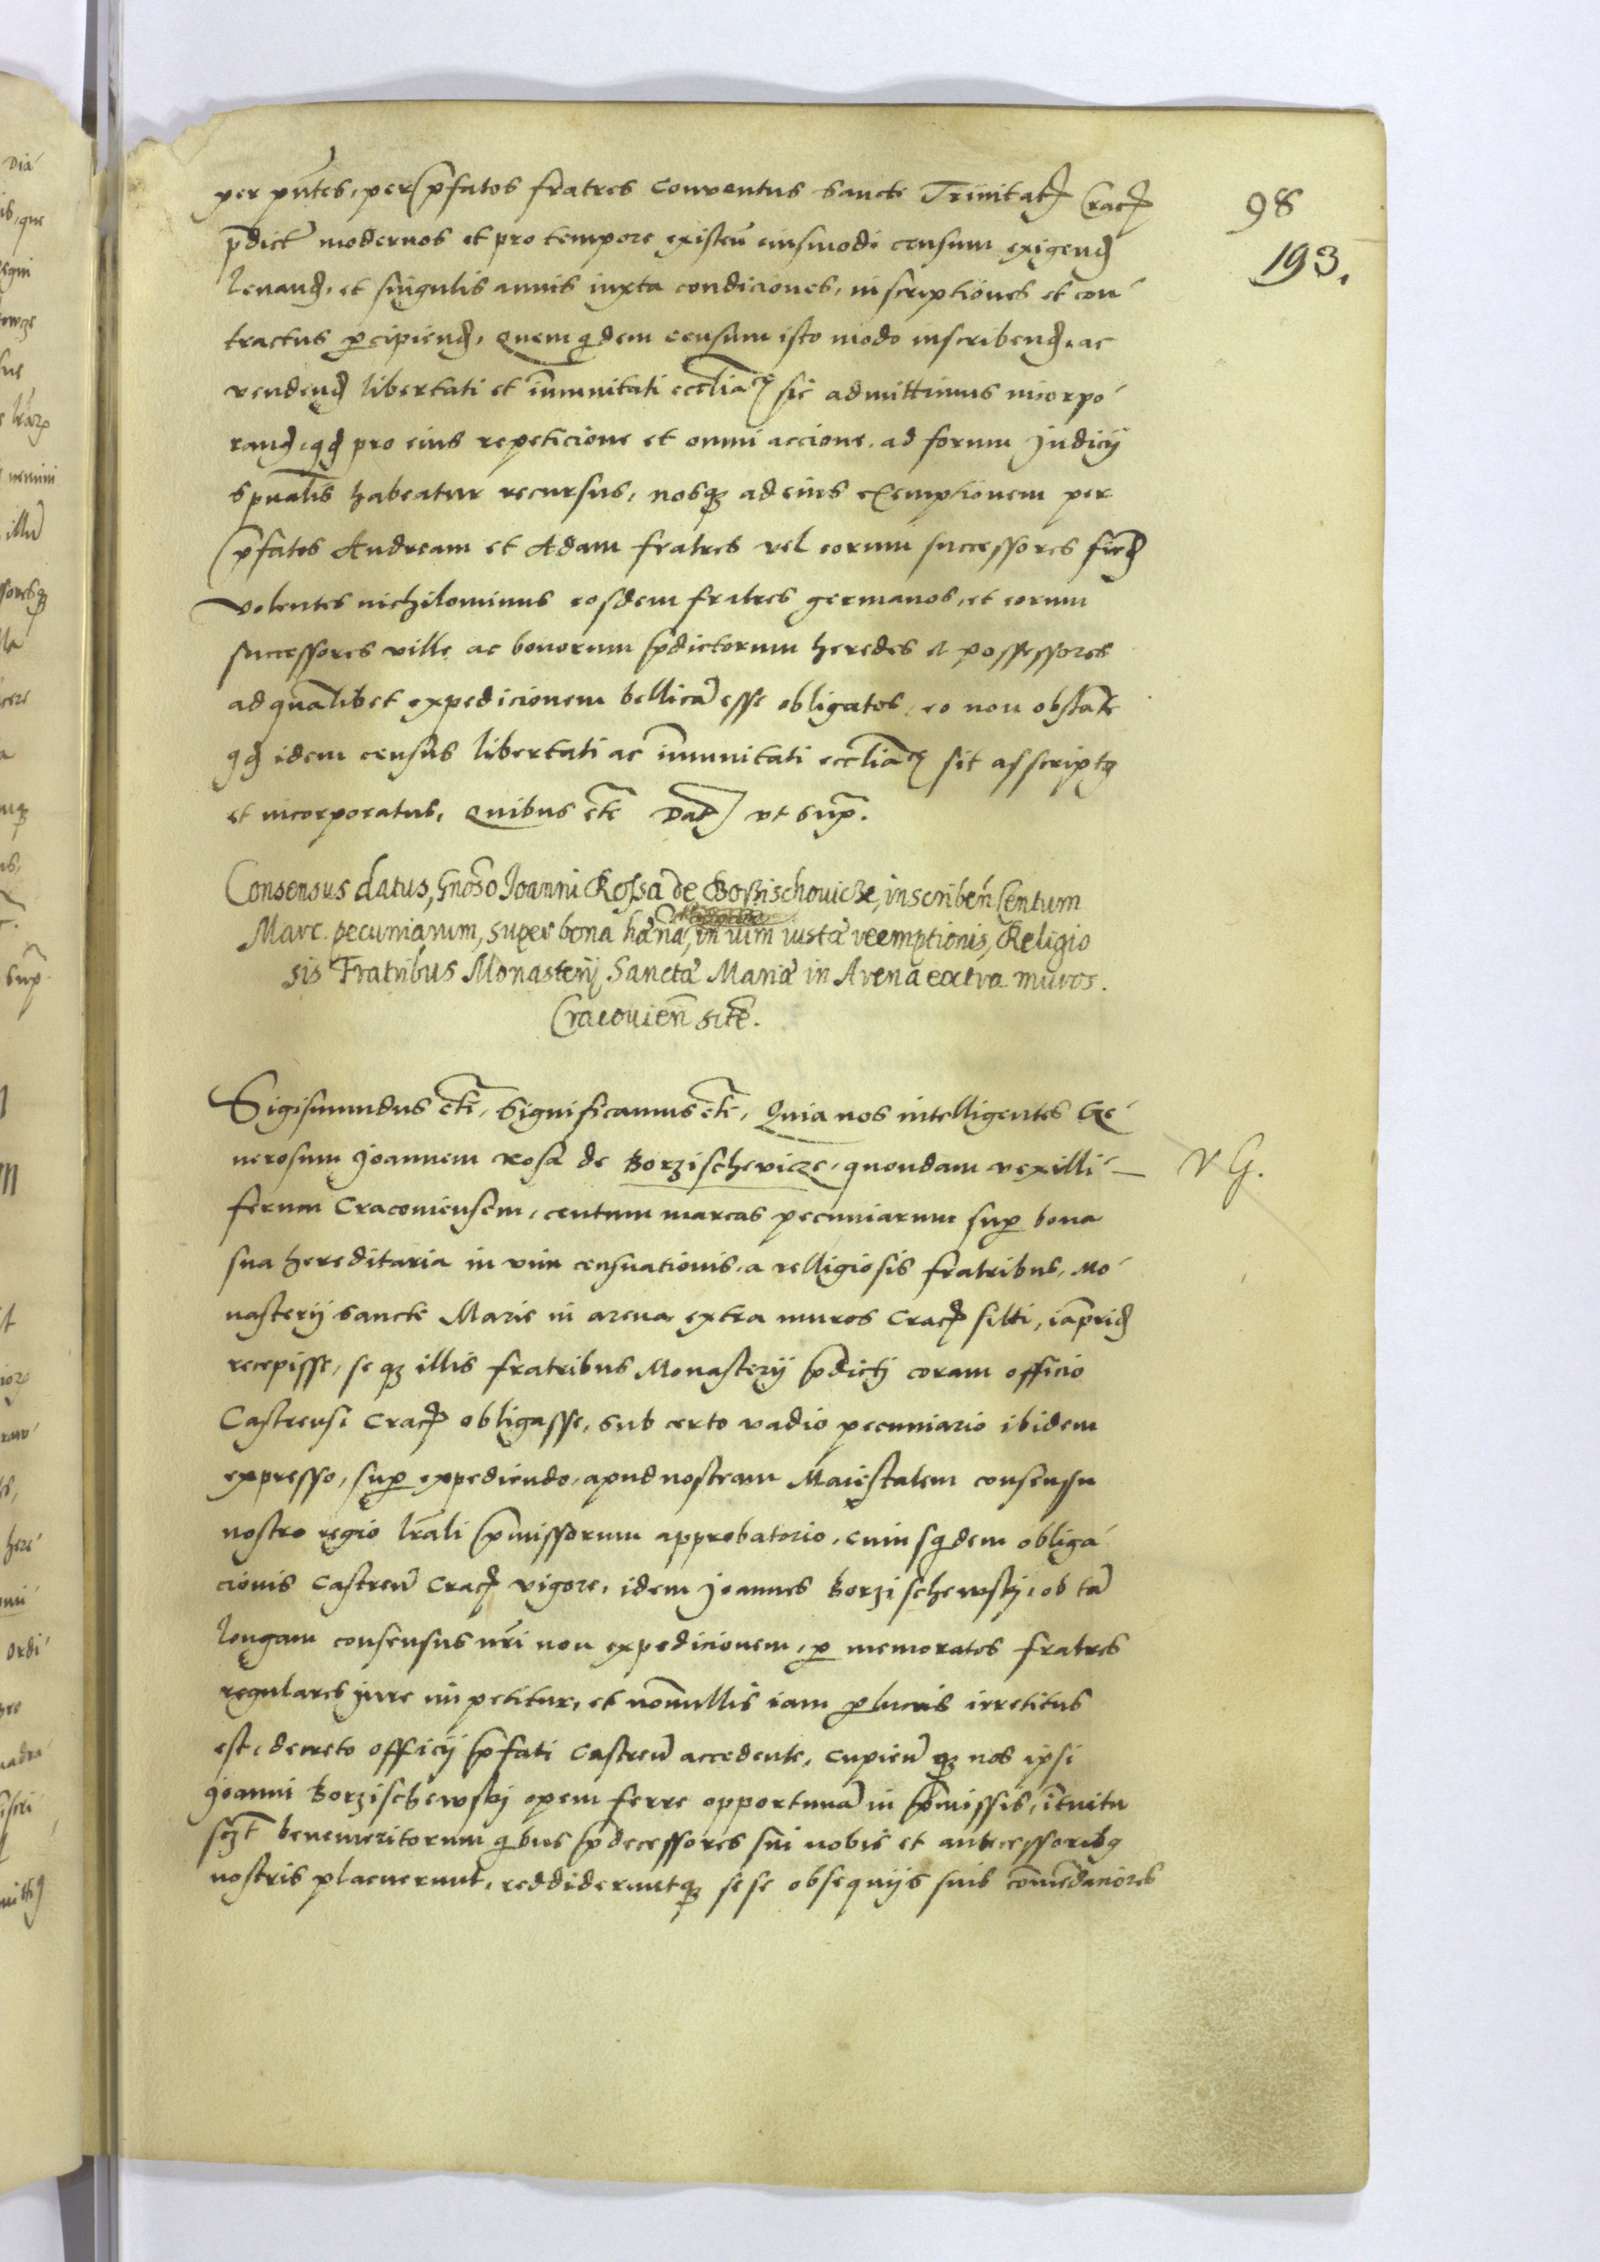 98
193.
per pñtes, per p̃fatos fratres conventus Sancte Trinitat̃ Crac̃
p̃dict̃ modernos et pro tempore existeñ eiusmodi censum exigend̃
levand̃, et singulis annis iuxta condiciones, inscriptiones et con-
tractus p̱cipiend̃, Quem qdem censum isto modo inscribend̃, ac
vendend̃ libertati et im̃unitati eccl̃iaꝝ sic admittimus incorpo-
rand̃, qd̃ pro eius repeticione et omni accione, ad forum Judicij
Spualis habeatur recursus, nosqꝫ ad eius exemptionem per
p̃fatos Andream et Adam fratres vel eorum successores fiend̃
volentes nichilominus eosdem fratres germanos, et eorum
successores ville ac bonorum p̃dictorum heredes et possessores
ad quamlibet expedicionem bellicã esse obligatos, eo non obstañte
qd̃ idem census libertati ac im̃unitati eccl̃iaꝝ sit asscriptꝰ
et incorporatus, Quibus etc̃ Dat̃ vt Sup̃.
Consensus datus, Gnõso Joanni Rossa de Borzischovicze, inscribeñ Centum
Marc. pecuniarum, super bona hæna, in vim iustæ reemptionis, Religio
sis Fratribus Monasterij Sanctæ Mariæ in Arena extra muros.
Cracovieñ sitẽ.
Sigismundus etc̃, Significamus etc̃, Quia nos intelligentes Ge-
nerosum Joannem Rosa de Borzischevicze, quondam vexilli- V G.
ferum Cracoviensem, centum marcas pecuniarum sup̱ bona
sua hereditaria in vim censuationis, a relligiosis fratribus, Mo-
nasterij Sancte Marie in arena extra muros Crac̃ sitti, iamprid̃
recepisse, se qꝫ illis fratribus Monasterij p̃dicti coram officio
Castrensi Crac̃ obligasse, sub certo vadio pecuniario ibidem
expresso, sup̱ expediendo, apud nostram Maiestatem consensu
nostro regio lr̃ali p̃missorum approbatorio, cuiusqdem obliga-
cionis Castreñ Crac̃ vigore, idem Joannes Borzischewskj, ob tã
longam consensus nr̃i non expedicionem, p̱ memoratos fratres
regulares jure impetitur, et nonnullis iam p̱lucris irretitus
est, decreto officij p̃fati Castreñ accedente, cupieñ qꝫ nos ipsi
Joanni Borzischewskj opem ferre opportunã in p̃missis, intuitu
sꝫt̃ benemeritorum qbus p̃decessores sui nobis et antecessoribꝰ
nostris placuerunt, reddideruntqꝫ sese obsequijs suis com̃endaciores